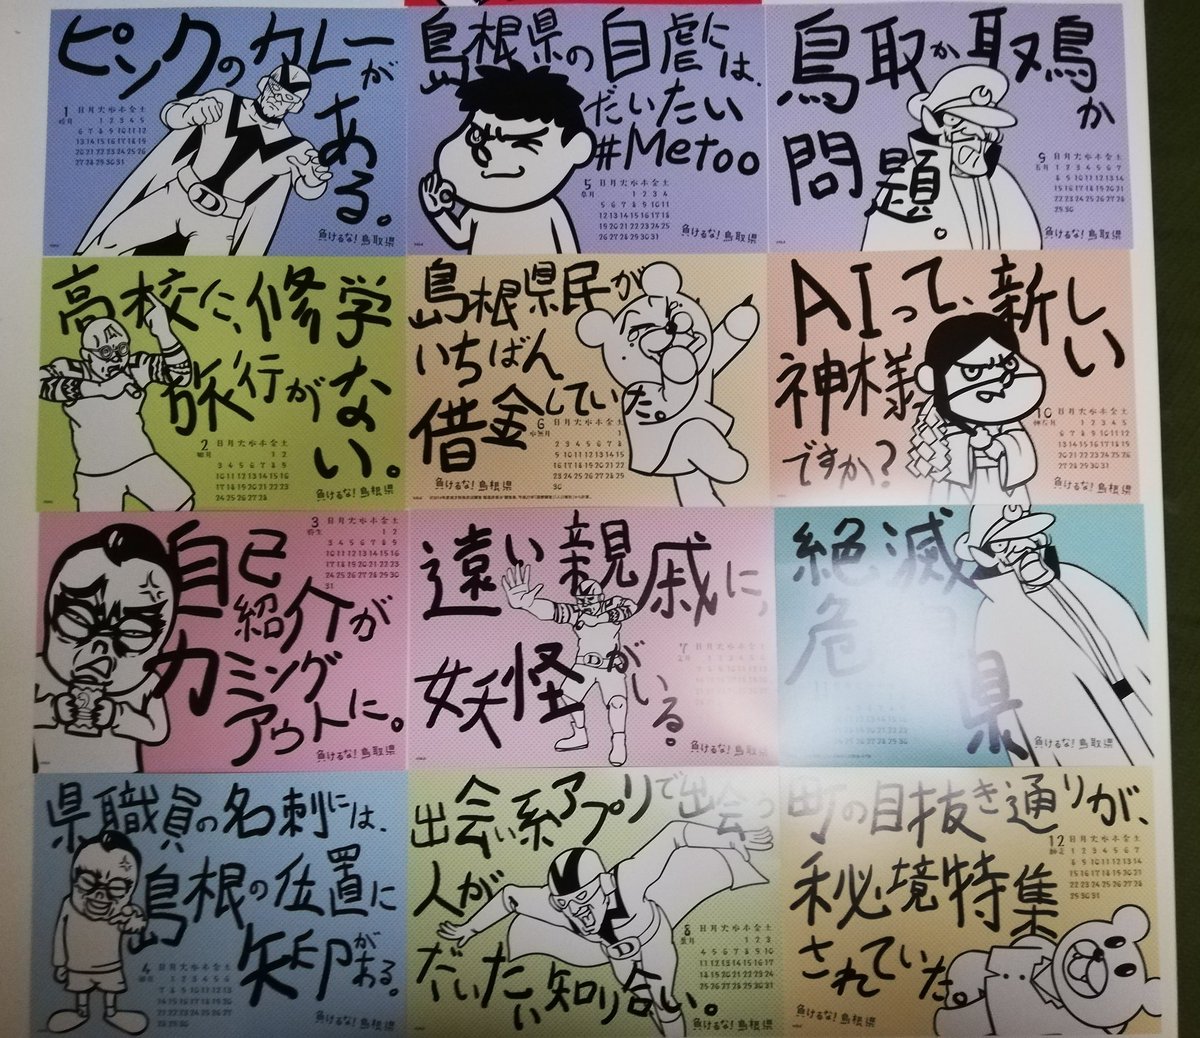 ピンクのカレーが
ある。
1
睦月
日 月 火 水 木 金 土
1 2 3 4 5
6 7 8 9 10 11 12
13 14 15 16 17 18 19
20 21 22 23 24 25 26
27 28 29 30 31
負けるな!鳥取県
島根県の自虐には、
だいたい
#Metoo
5
日 月 火 水 木 金 土
1 2 3 4
5 6 7 8 9 10 11
12 13 14 15 16 17 18
19 20 21 22 23 24 25
26 27 28 29 30 31
負けるな!島根県
鳥取か取鳥か
問題。
9
長月
日 月 火 水 木 金 土
1 2 3 4 5 6 7
8 9 10 11 12 13 14
15 16 17 18 19 20 21
22 23 24 25 26 27 28
29 30
負けるな!鳥取県
高校に、修学
旅行がない。
2
如月
日 月 火 水 木 金 土
1 2
3 4 5 6 7 8 9
10 11 12 13 14 15 16
17 18 19 20 21 22 23
24 25 26 27 28
負けるな!島根県
島根県民が
いちばん
借金していた。
6
水無月
日 月 火 水 木 金 土
1
2 3 4 5 6 7 8
9 10 11 12 13 14 15
16 17 18 19 20 21 22
23 24 25 26 27 28 29
30
負けるな!島根県
AIって、新しい
神様
ですか?
10
神在月
日 月 火 水 木 金 土
1 2 3 4 5
6 7 8 9 10 11 12
13 14 15 16 17 18 19
20 21 22 23 24 25 26
27 28 29 30 31
負けるな!島根県
自己
紹介が
カミングアウトに。
3
弥生
日 月 火 水 木 金 土
1 2
3 4 5 6 7 8 9
10 11 12 13 14 15 16
17 18 19 20 21 22 23
24 25 26 27 28 29 30
31
負けるな!鳥取県
遠い親戚に、
妖怪がいる。
7
文月
負けるな!鳥取県
絶滅
危
県
負けるな!鳥取県
県職員の名刺には、
島根の位置に
矢印がある。
4
卯月
日 月 火 水 木 金 土
1 2 3 4 5 6
7 8 9 10 11 12 13
14 15 16 17 18 19 20
21 22 23 24 25 26 27
28 29 30
負けるな!島根県
出会い系アプリで出会っ
人が
だいたい知り合い。
8
葉月
日 月 火 水 木 金 土
1 2 3
4 5 6 7 8 9 10
11 12 13 14 15 16 17
18 19 20 21 22 23 24
25 26 27 28 29 30 31
負けるな!島根県
町の目抜き通りが、
秘境特集
されていた。
12
師走
日 月 火 水 木 金 土
1 2 3 4 5 6 7
8 9 10 11 12 13 14
15 16 17 18 19 20 21
22 23 24 25 26 27 28
29 30 31
負けるな!島根県